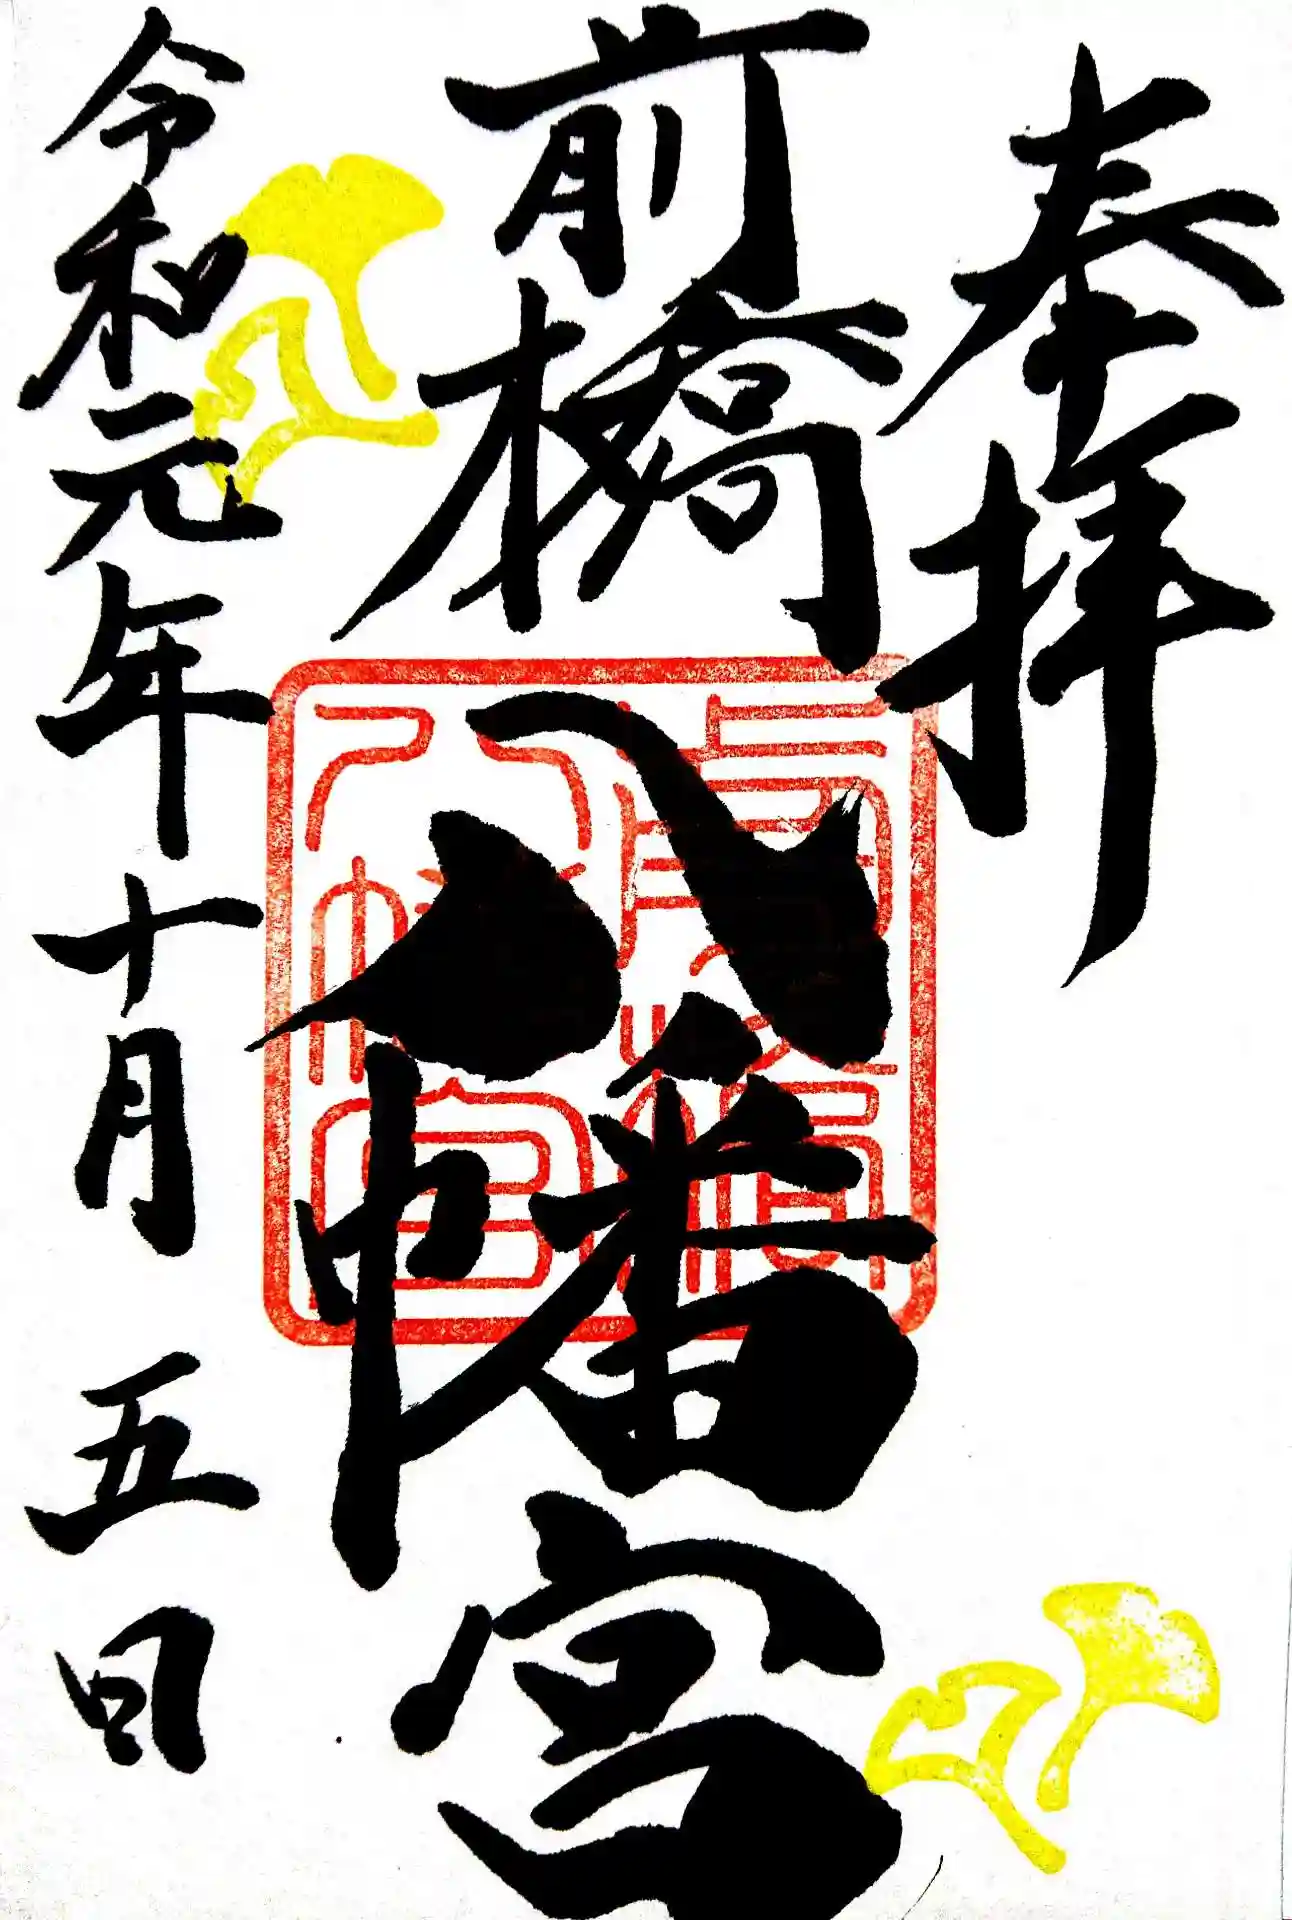 奉拝
前橋八幡宮
前橋八幡宮
令和元年十月五日